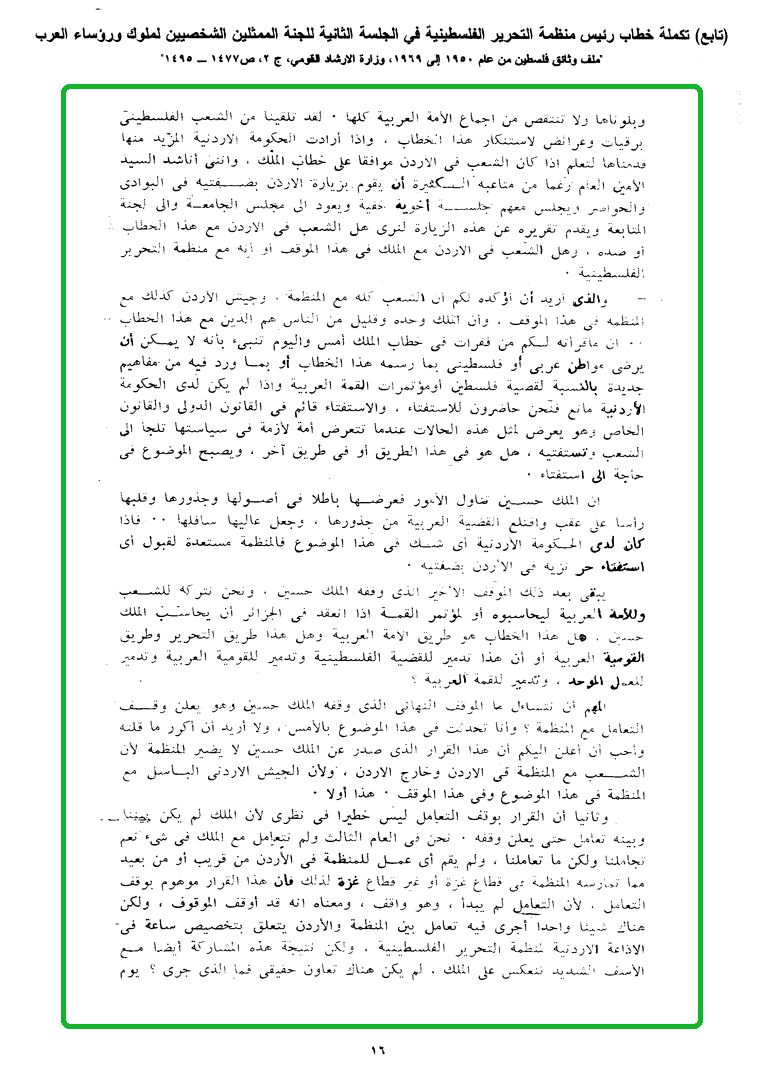 (تابع) تكملة خطاب رئيس منظمة التحرير الفلسطينية في الجلسة الثانية للجنة الممثلين الشخصيين لملوك ورؤساء العرب
"ملف وثائق فلسطين من عام ١٩٥٠ إلى ١٩٦٩، وزارة الارشاد القومي، ج ٢، ص١٤٧٧ – ١٤٩٥"
وبلوناها ولا تنتقص من اجماع الأمة العربية كلها ٠ لقد تلقينا من الشعب الفلسطينى
برقيات وعرائض لاستنكار هذا الخطاب ، واذا أرادت الحكومة الاردنية المزيد منها
قدمناها لتعلم اذا كان الشعب فى الاردن موافقا على خطاب الملك . واننى أناشد السيد
الأمين العام رغما من متاعبه الكثيرة أن يقوم بزيارة الاردن بضفتيه فى البوادى
والحواضر ويجلس معهم جلسة أخوية خفية ويعود الى مجلس الجامعة والى لجنة
المتابعة ويقدم تقريره عن هذه الزيارة لنرى هل الشعب فى الاردن مع هذا الخطاب
أو ضده ، وهل الشعب فى الاردن مع الملك فى هذا الموقف أو أنه مع منظمة التحرير
الفلسطينية ٠
– والذى أريد أن أؤكده لكم أن الشعب كله مع المنظمة . وجيش الاردن كذلك مع
المنظمه فى هذا الموقف ، وأن الملك وحده وقليل من الناس هم الذين مع هذا الخطاب
٠٠ ان ماقرأته لكم من فقرات فى خطاب الملك أمس واليوم تنبىء بأنه لا يمكن أن
يرضى مواطن عربى أو فلسطينى بما رسمه هذا الخطاب أو بما ورد فيه من مفاهيم
جديدة بالنسبة لقضية فلسطين أومؤتمرات القمة العربية واذا لم يكن لدى الحكومة
الأردنية مانع فنحن حاضرون للاستفتاء ، والاستفتاء قائم فى القانون الدولى والقانون
الخاص وهو يعرض لمثل هذه الحالات عندما تتعرض أمة لأزمة فى سياستها تلجأ الى
الشعب وتستفتيه ، هل هو فى هذا الطريق أو فى طريق آخر ، ويصبح الموضوع فى
حاجة الى استفتاء ٠
ان الملك حسين تناول الأمور فعرضها باطلا فى أصولها وجذورها وقلبها
رأسا على عقب واقتلع القضية العربية من جذورها ، وجعل عاليها سافلها ٠٠ فاذا
كان لدى الحكومة الأردنية أى شك فى هذا الموضوع فالمنظمة مستعدة لقبول أى
استفتاء حر نزيه فى الاردن بضفتيه ٠
يبقى بعد ذلك الموقف الأخير الذى وقفه الملك حسين . ونحن نتركه للشعب
وللأمة العربية ليحاسبوه أو لمؤتمر القمة اذا انعقد فى الجزائر أن يحاسب الملك
حسين . هل هذا الخطاب هو طريق الامة العربية وهل هذا طريق التحرير وطريق
القومية العربية أو أن هذا تدمير للقضية الفلسطينية وتدمير للقومية العربية وتدمير
للعمل الموحد ، وتدمير للقمة العربية ؟
المهم أن نتساءل ما الموقف النهائى الذى وقفه الملك حسين وهو يعلن وقف
التعامل مع المنظمة ؟ وأنا تحدثت فى هذا الموضوع بالأمس ، ولا أريد أن أكرر ما قلته
وأحب أن أعلن اليكم أن هذا القرار الذى صدر عن الملك حسين لا يضير المنظمة لأن
الشعب مع المنظمة فى الاردن وخارج الاردن ، ولأن الجيش الاردنى الباسل مع
المنظمة فى هذا الموضوع وفى هذا الموقف ٠ هذا أولا ٠
وثانيا أن القرار بوقف التعامل ليس خطيرا فى نظرى لأن الملك لم يكن بيننا
وبينه تعامل حتى يعلن وقفه ٠ نحن فى العام الثالث ولم نتعامل مع الملك فى شىء نعم
تجاملنا ولكن ما تعاملنا ، ولم يقم أى عمل للمنظمة فى الأردن من قريب أو من بعيد
مما تمارسه المنظمة فى قطاع غزة أو غير قطاع غزة لذلك فان هذا القرار موهوم بوقف
التعامل . لأن التعامل لم يبدأ ، وهو واقف ، ومعناه انه قد أوقف الموقوف ، ولكن
هناك شيئا واحدا أجرى فيه تعامل بين المنظمة والأردن يتعلق بتخصيص ساعة فى
الاذاعة الاردنية لمنظمة التحرير الفلسطينية . ولكن نتيجة هذه المشاركة أيضا مع
الأسف الشديد تنعكس على الملك . لم يكن هناك تعاون حقيقى فما الذى جرى ؟ يوم
١٦